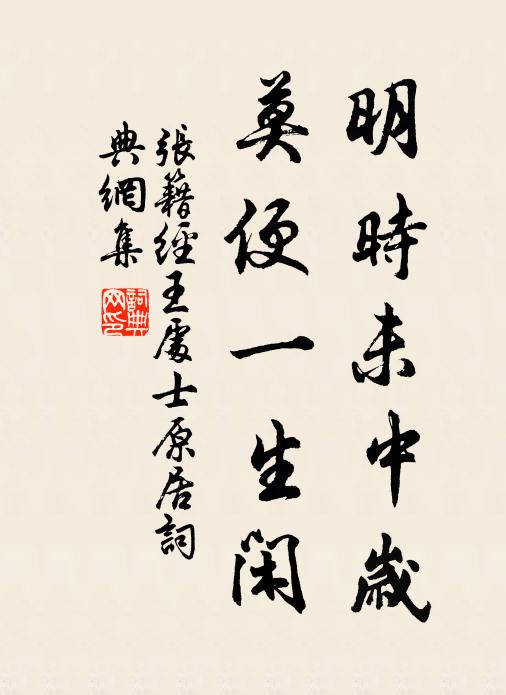 明時未中歲
莫便一生閑
張籍經王處士原居詞
典網集
詞典網印